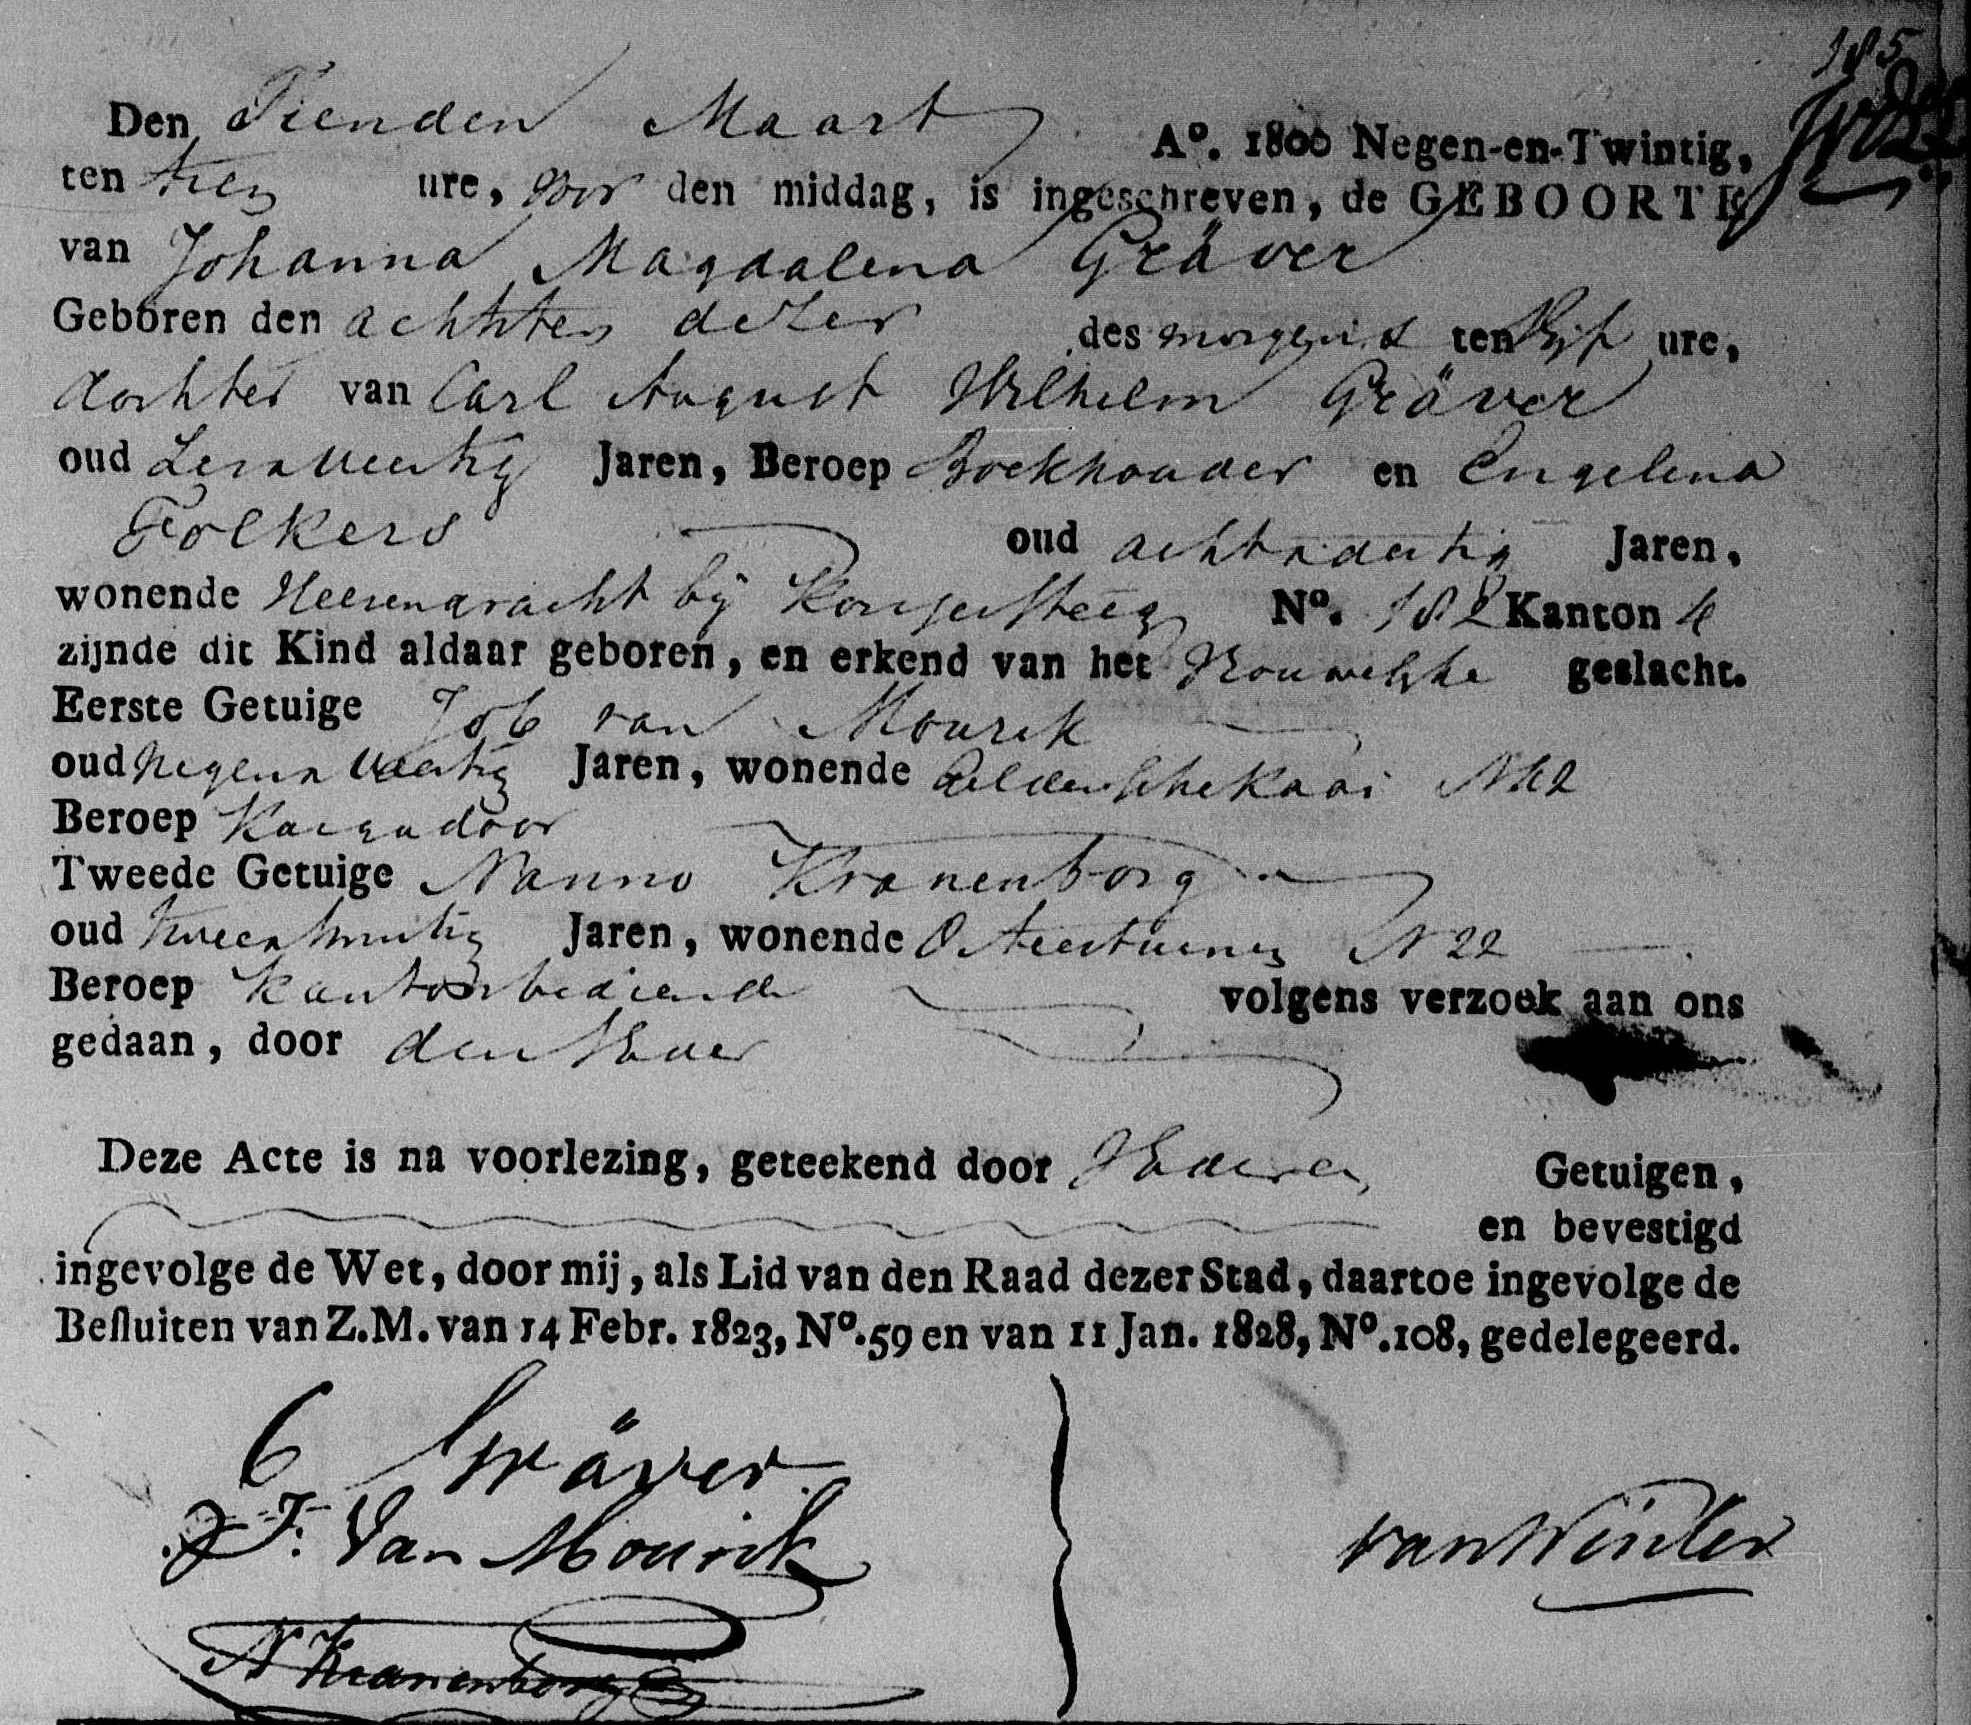 185
Den Tienden Maart A°. 1800 Negen-en-Twintig,
ten tien ure, voor den middag, is ingeschreven, de GEBOORTE
van Johanna Magdalena Gräver
Geboren den achtsten dezer des morgens ten vijf ure,
dochter van Carl August Wilhelm Gräver
oud zesenveertig Jaren, Beroep Boekhouder en Engelina
Folkers oud achtendertig Jaren,
wonende Heerengracht bij Konijnsteeg N°. 182 Kanton 4
zijnde dit Kind aldaar geboren, en erkend van het Vrouwelyke geslacht.
Eerste Getuige Job van Mourik
oud negenenveertig Jaren, wonende Geldersche Kaai N 42
Beroep Kargadoor
Tweede Getuige Nanno Kranenborg
oud tweentwintig Jaren, wonende Achtertuinen N 22
Beroep Kantoorbediende volgens verzoek aan ons
gedaan, door den Vader
Deze Acte is na voorlezing, geteekend door Vader en Getuigen,
en bevestigd
ingevolge de Wet, door mij, als Lid van den Raad dezer Stad, daartoe ingevolge de
Besluiten van Z.M. van 14 Febr. 1823, N°. 59 en van 11 Jan. 1828, N°. 108, gedelegeerd.
C Gräver
J F. Van Mourik
van Winter
N Kranenborg